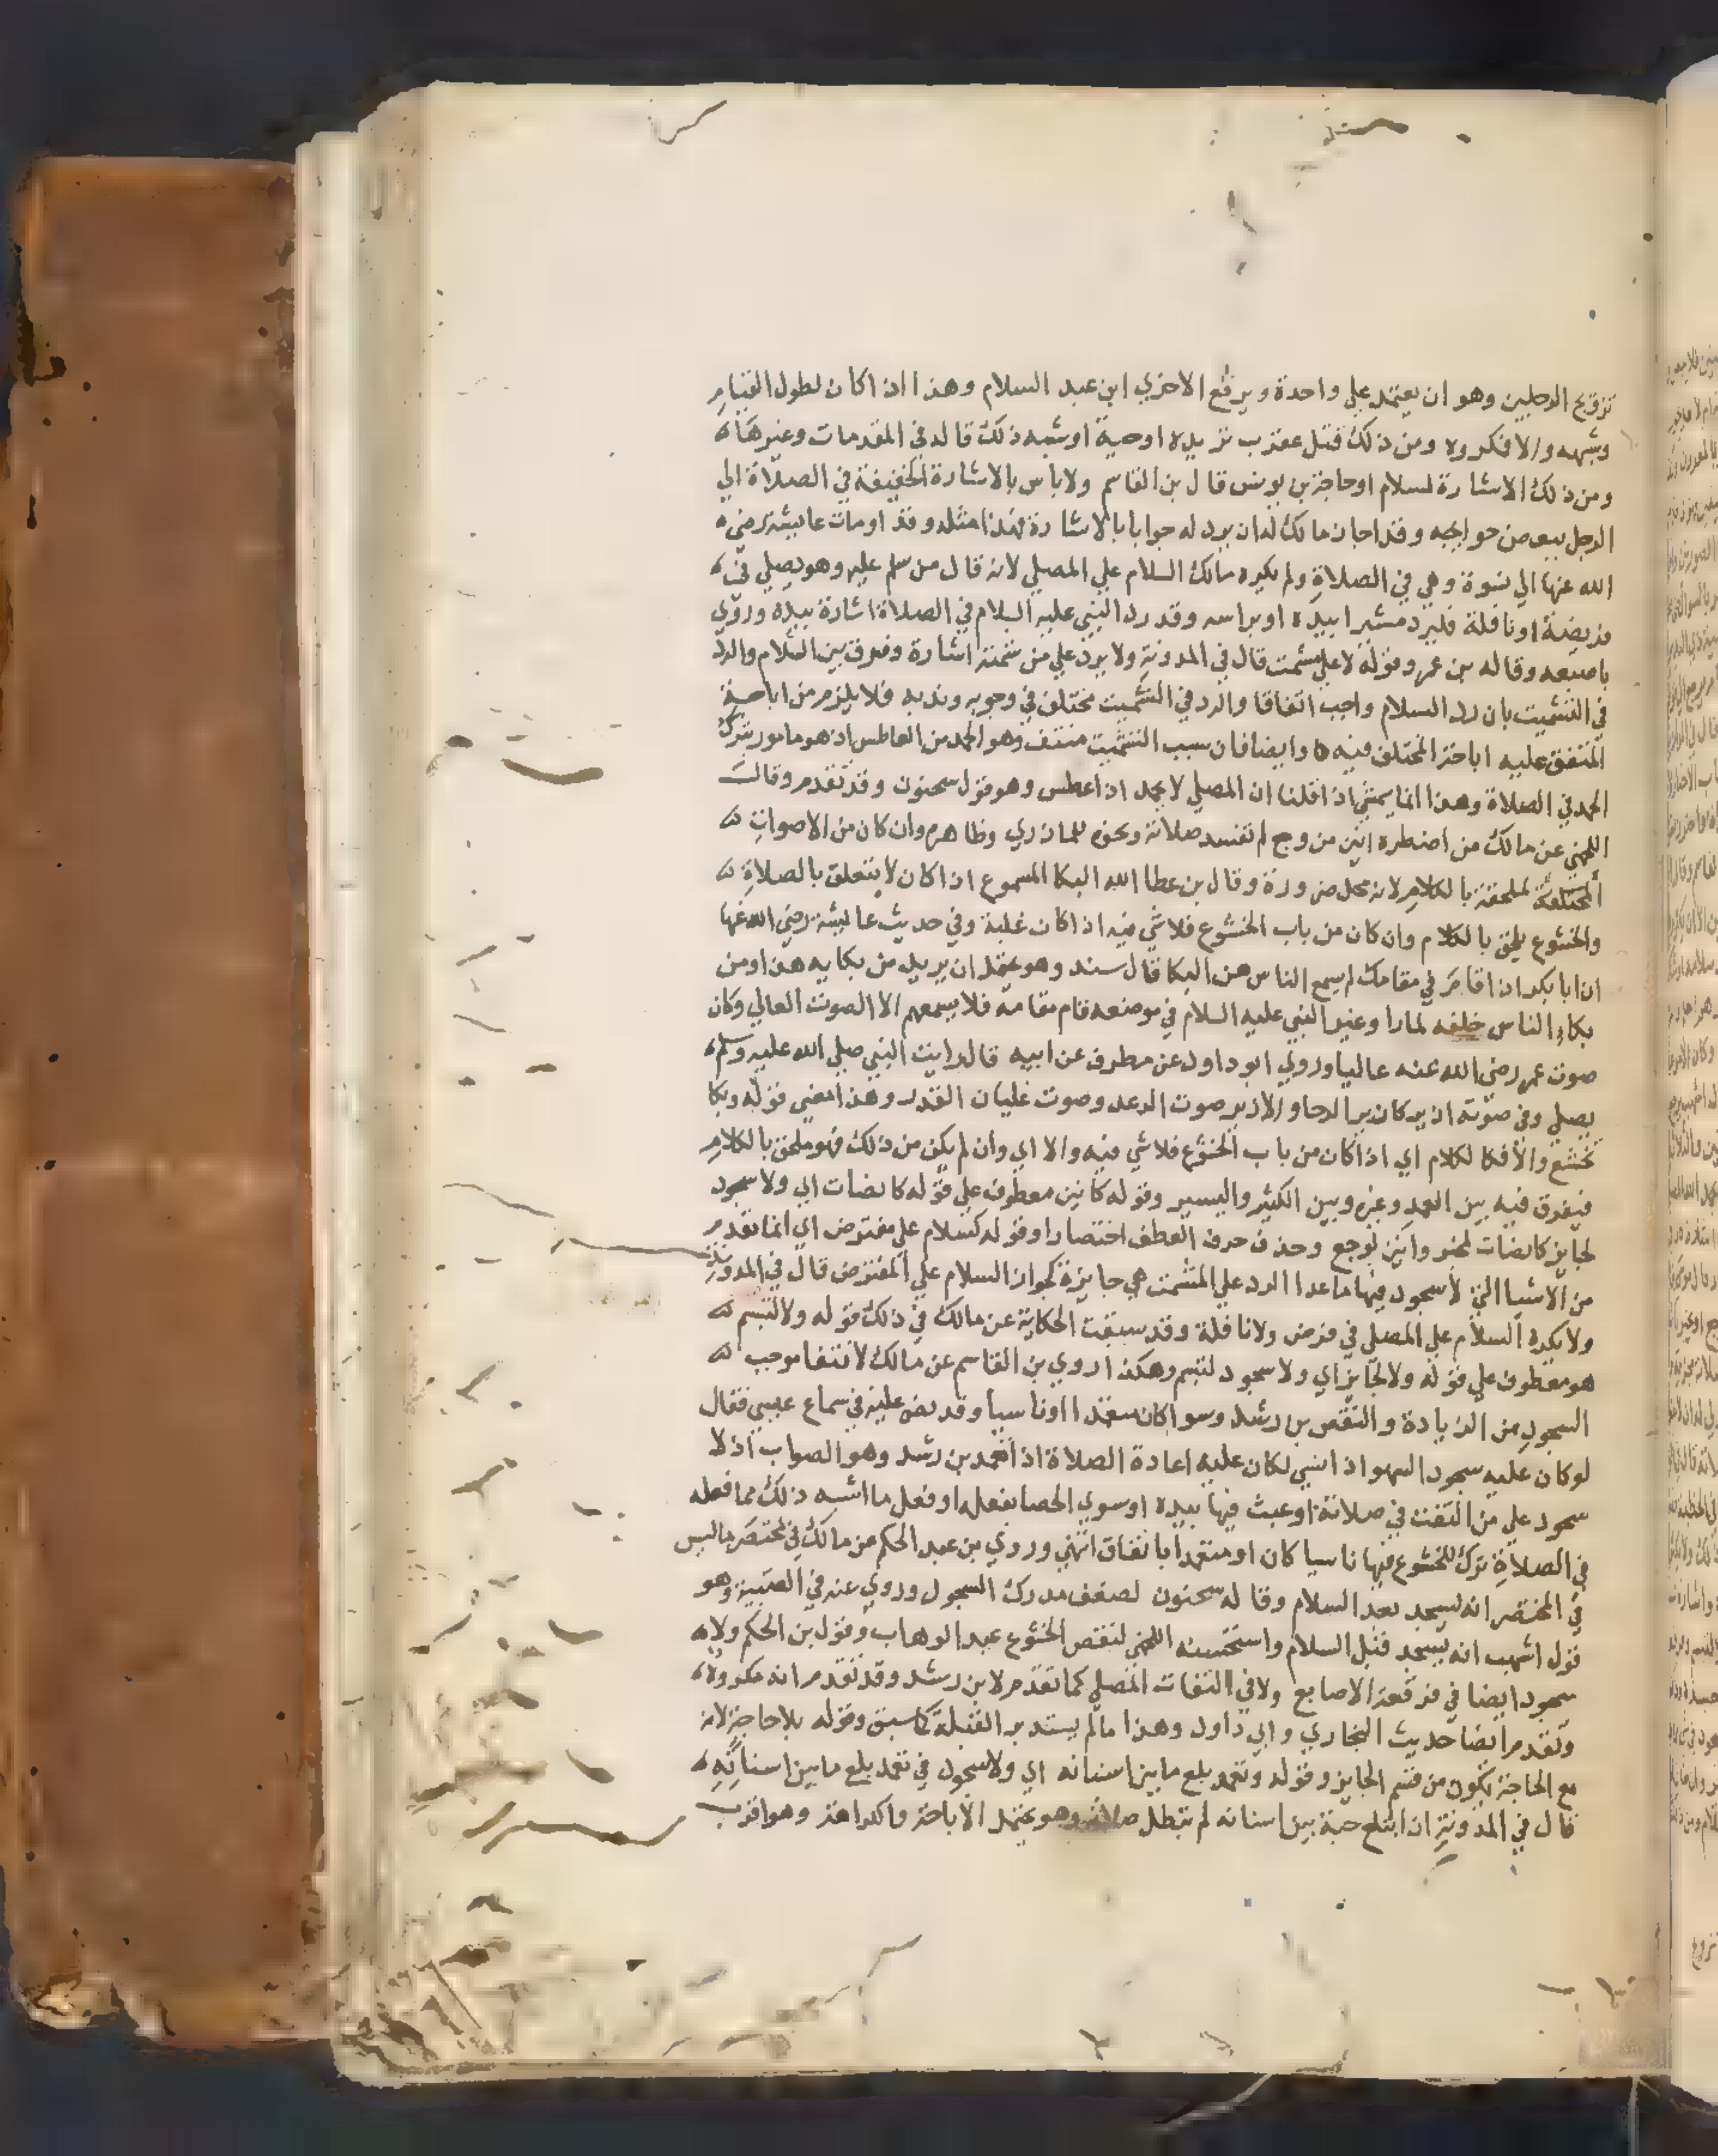 تزويج الرجلين وهو ان يعتمد علي واحدة ويرفع الاخري ابن عبد السلام وهذا اذا كان لطول القيام
وشبهه والا فمكروه ومن ذلك قتل عقرب تريده او حية او شبه ذلك قاله في المقدمات وغيرها
ومن ذلك الاشارة لسلام او حاجة بن يونس قال بن القاسم ولا باس بالاشارة الخفيفة في الصلاة الي
الرجل ببعض حوايجه وقد اجاز مالك له ان يرد له جوابا بالاشارة فهذا مثله وقد اومات عايشة رضي
الله عنها الي نسوة وهي في الصلاة ولم يكره مالك السلام علي المصلي لانه قال من سلم عليه وهو يصلي في
فريضة او نافلة فليرد مشيرا بيده او براسه وقد رد النبي عليه السلام في الصلاة اشارة بيده وروي
باصبعه وقاله بن عمر وقوله لا علي مشمت قال في المدونة ولا يرد علي من شمته اشارة وفرق بين السلام والرد
في التشميت بان رد السلام واجب اتفاقا والرد في التشميت مختلف في وجوبه وندبه فلا يلزم من اباحة
المتفق عليه اباحة المختلف فيه وايضا فان سبب التشميت منتف وهو الحمد من العاطس اذ هو مامور بترك
الحمد في الصلاة وهذا انما يمشي اذا قلنا ان المصلي لا يحمد اذا عطس وهو قول سحنون وقد تقدم وقالت
اللخمي عن مالك من اضطره انين من وجع لم تفسد صلاته ونحوه للمازري وظاهره وان كان من الاصوات
المختلفة لملحقة بالكلام لانه محل ضرورة وقال بن عطا الله البكا المسموع اذا كان لا يتعلق بالصلاة
والخشوع يلحق بالكلام وان كان من باب الخشوع فلا شي فيه اذا كان غلبة وفي حديث عايشة رضي الله عنها
ان ابا بكر اذا قام في مقامك لم يسمع الناس من البكا قال سند وهو يحتمل ان يريد من بكايه هذا ومن
بكاء الناس خلفه لما راوا غير النبي عليه السلام في موضعه قام مقامه فلا يسمعهم الا الصوت العالي وكان
صوت عمر رضي الله عنه عاليا وروي ابو داود عن مطرف عن ابيه قال رايت النبي صلي الله عليه وسلم
يصلي وفي صوته ازيز كازيز الرحا والازيز صوت الرعد وصوت غليان القدر وهذا معني قوله وبكا
تخشع والا فكالكلام اي اذا كان من باب الخشوع فلا شي فيه والا اي وان لم يكن من ذلك فهو ملحق بالكلام
فيفرق فيه بين العمد وغيره وبين الكثير واليسير وقوله كانين معطوف علي قوله كانصات اي ولا سجود
لجايز كانصات لمخبر وانين لوجع وحذف حرف العطف اختصارا وقوله كسلام علي مفترض اي انما تقدم
من الاشيا التي لا سجود فيها ما عدا الرد علي المشمت هي جايزة كجواز السلام علي المفترض قال في المدونة
ولا يكره السلام علي المصلي في فرض ولا نافلة وقد سبقت الحكاية عن مالك في ذلك قوله ولا لتبسم
هو معطوف علي قوله ولا لجايز اي ولا سجود لتبسم وهكذا روي بن القاسم عن مالك لانتفا موجب
السجود من الزيادة والنقص بن رشد وسوا كان متعمدا او ناسيا وقد نص عليه في سماع عيسي فقال
لو كان عليه سجود السهو اذا نسي لكان عليه اعادة الصلاة اذا تعمد بن رشد وهو الصواب اذ لا
سجود علي من التفت في صلاته او عبث فيها بيده او سوي الحصا بنعله او فعل ما اشبه ذلك مما فعله
في الصلاة ترك للخشوع فيها ناسيا كان او متعمدا باتفاق انتهي وروي بن عبد الحكم عن مالك في مختصر ما ليس
في المختصر انه يسجد بعد السلام وقاله سحنون لضعف مدرك السجود وروي عنه في العتبية وهو
قول اشهب انه يسجد قبل السلام واستحسنه اللخمي لنقص الخشوع عبد الوهاب وقول بن الحكم ولا
سجود ايضا في فرقعة الاصابع ولا في التفات المصلي كما تقدم لابن رشد وقد تقدم انه مكروه
وتقدم ايضا حديث البخاري وابي داود وهذا ما لم يستدبر القبلة كما سبق وقوله بلا حاجة لانه
مع الحاجة يكون من قسم الجايز وقوله وتعمد بلع ما بين اسنانه اي ولا سجود في تعمد بلع ما بين اسنانه
قال في المدونة ان ابتلع حبة بين اسنانه لم تبطل صلاته وهو يحتمل الاباحة والكراهة وهو اقرب